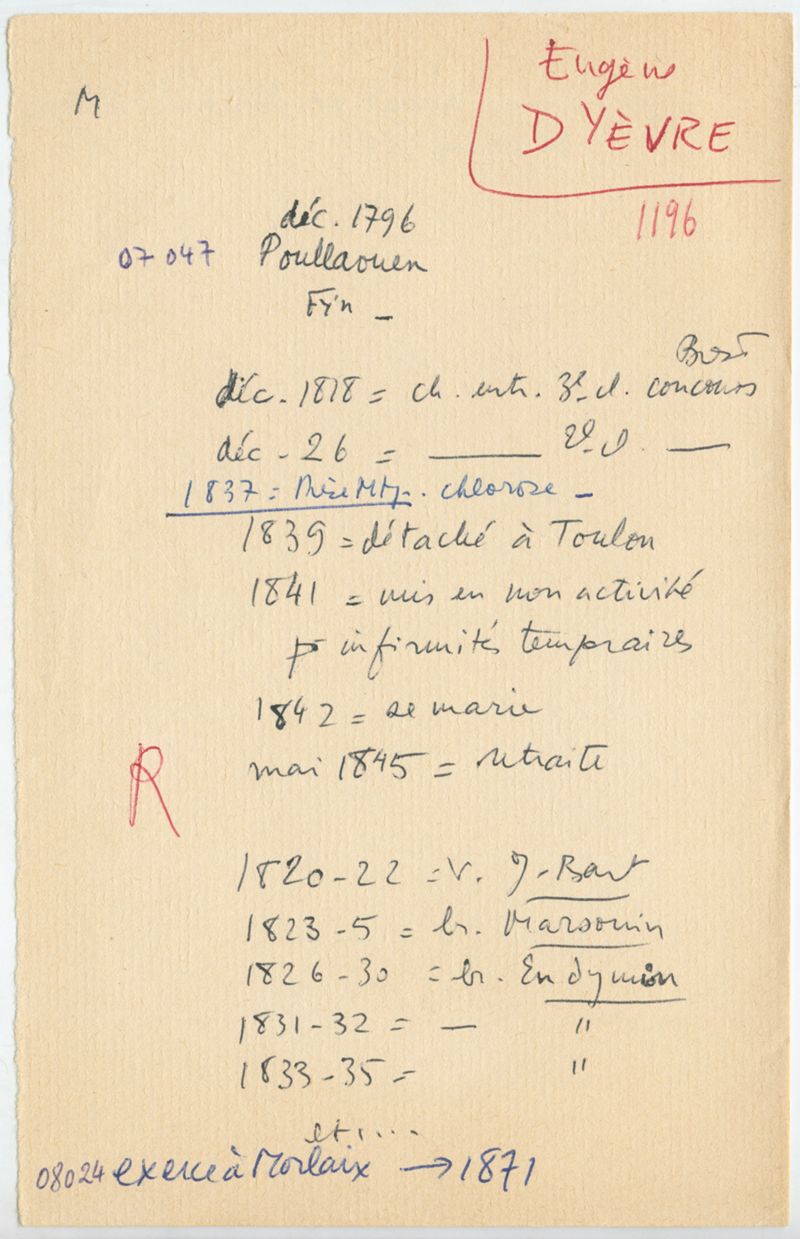 M
Eugène
DYÈVRE
1196
déc. 1796
07 047 Poullaouen
Fin –
Brest
déc. 1818 = ch. entr. 3e cl. concours
déc - 26 = —— 2e cl. ——
1837 = thèse Mtp. chlorose –
1839 = détaché à Toulon
1841 = mis en non activité
pr infirmités temporaires
1842 = se marie
mai 1845 = retraite
R
1820-22 = v. J-Bart
1823-5 = br. Marsouin
1826-30 = br. Endymion
1831-32 = — "
1833-35 = "
et....
08024 exerce à Morlaix → 1871